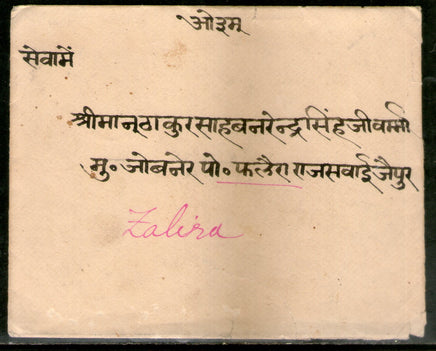 ओ३म्
सेवामें
श्रीमान् ठाकुर साहब नरेन्द्रसिंहजी वर्म्मा
मु॰ जोबनेर पो॰ फलैरा राज सवाई जैपुर
Zalira